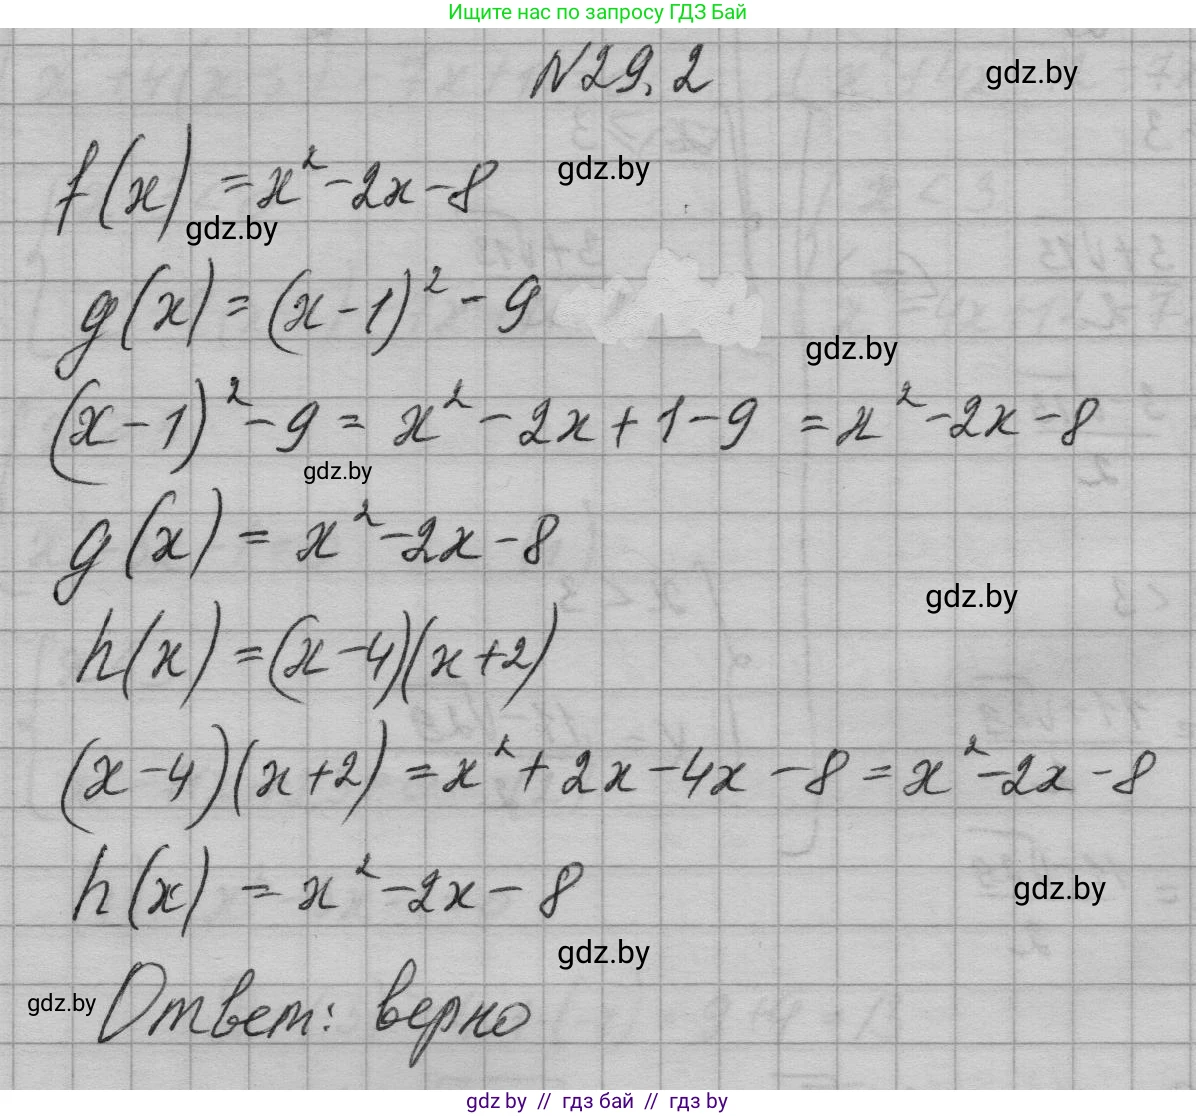 Ищите нас по запросу ГДЗ Бай
N29.2
gdz.by
f(x) = x² - 2x - 8
gdz.by
gdz.by
g(x) = (x - 1)² - 9
gdz.by
(x - 1)² - 9 = x² - 2x + 1 - 9 = x² - 2x - 8
gdz.by
g(x) = x² - 2x - 8
gdz.by
h(x) = (x - 4)(x + 2)
(x - 4)(x + 2) = x² + 2x - 4x - 8 = x² - 2x - 8
h(x) = x² - 2x - 8
gdz.by
gdz.by
gdz.by
Ответ: верно
gdz.by // гдз бай // гдз by